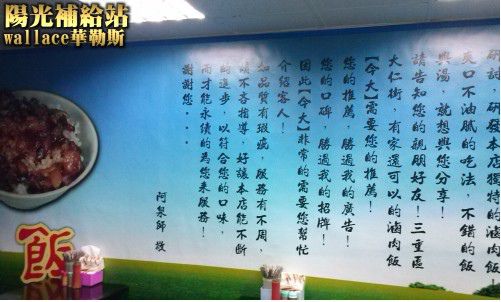 陽光補給站
wallace華勒斯
研發本店獨特的滷肉飯！
爽口不油膩的吃法 不錯的飯
與湯，就想與您分享！
請告知您的親朋好友！三重區
大仁街，有家還可以的滷肉飯
【今大】需要您的推薦！
您的推薦，勝過我的廣告！
您的口碑，勝過我的招牌！
因此【今大】非常的需要您幫忙
介紹客人！
如品質有瑕疵，服務有不周，
請不吝指導，好讓本店能不斷
的進步，以符合您的口味，
而才能永續的為您來服務！
謝謝您...
阿泉師 敬
飯